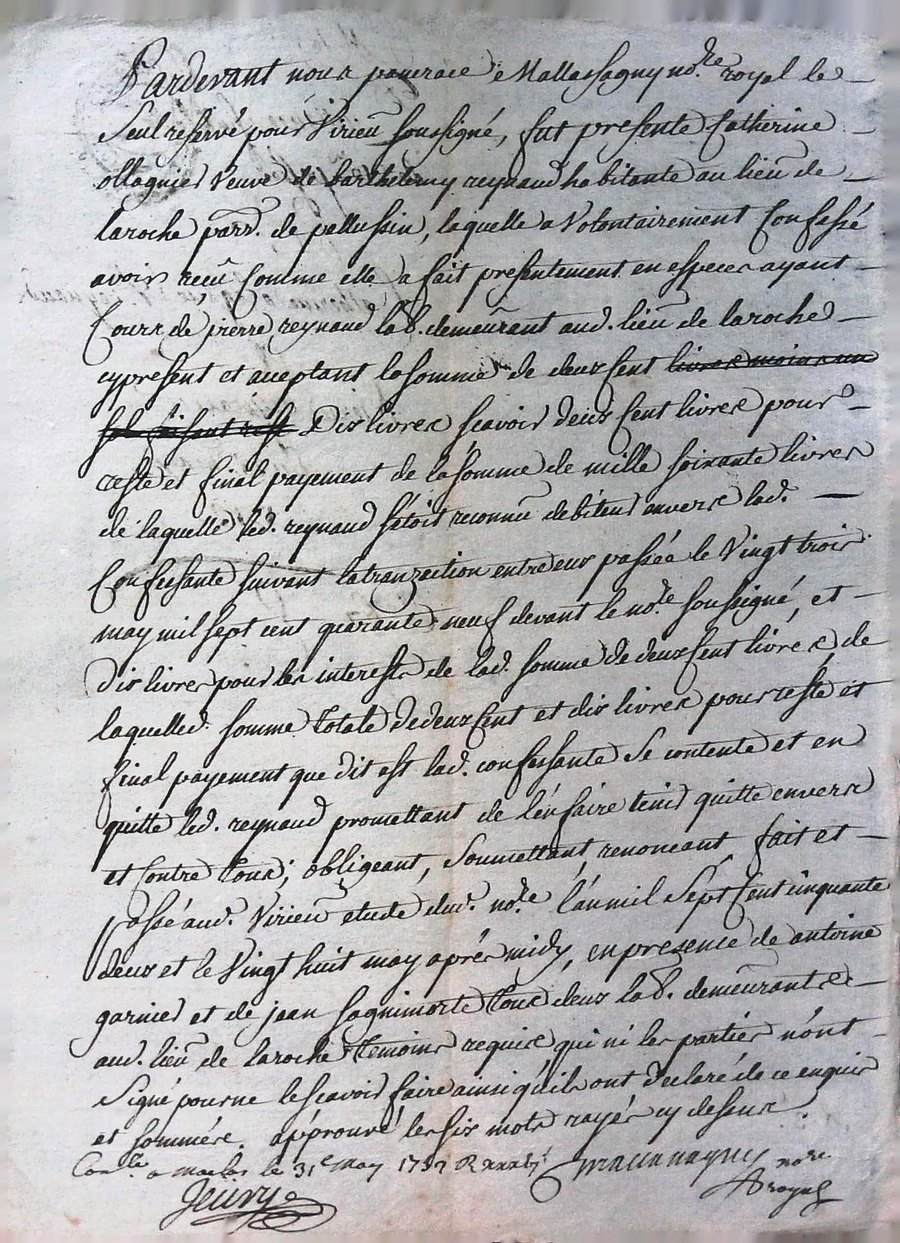 Pardevant nous pancrace Mallassagny no.re royal le
Seul reservé pour Virieu soussigné, fut presente Catherine
ollagnier Veuve de barthelemy reynaud habitante au lieu de
laroche parr. de pellussin, laquelle a Volontairement Confessé
avoir reçeu Comme elle a fait presentement en especes ayant
Cours de pierre reynaud lab. demeurant aud. lieu de laroche
cy present et acceptant la somme de deux Cent livres moins un
sol faisant reste Dix livres scavoir deux Cent livres pour
reste et final payement de la somme de mille soixante livres
de laquelle led. reynaud s'étoit reconnu debiteur envers lad.
Confessante suivant la tranzaction entre eux passée le Vingt trois
may mil sept cent quarante neuf devant le no.re soussigné, et
Dix livres pour les interests de lad. somme de deux Cent livres de
laquelled. somme totale de deux Cent et dix livres pour reste et
final payement que dit est lad. confessante se contente et en
quitte led. reynaud promettant de l'en faire tenir quitte envers
et Contre tous; obligeant, soumettant, renonceant, fait et
passé aud. Virieu etude dud. no.re l'an mil sept Cent cinquante
deux et le Vingt huit may après midy, en presence de antoine
garnier et de jean sagnimorte tous deux lab. demeurants
aud. lieu de laroche temoins requis qui ni les parties n'ont
Signé pour ne le scavoir faire ainsi qu'ils ont declaré de ce enquis
et sommés. approuvé les six mots rayés cy dessus.
Con.lé a maclas le 31e may 1752 R no.re
Jeury royal